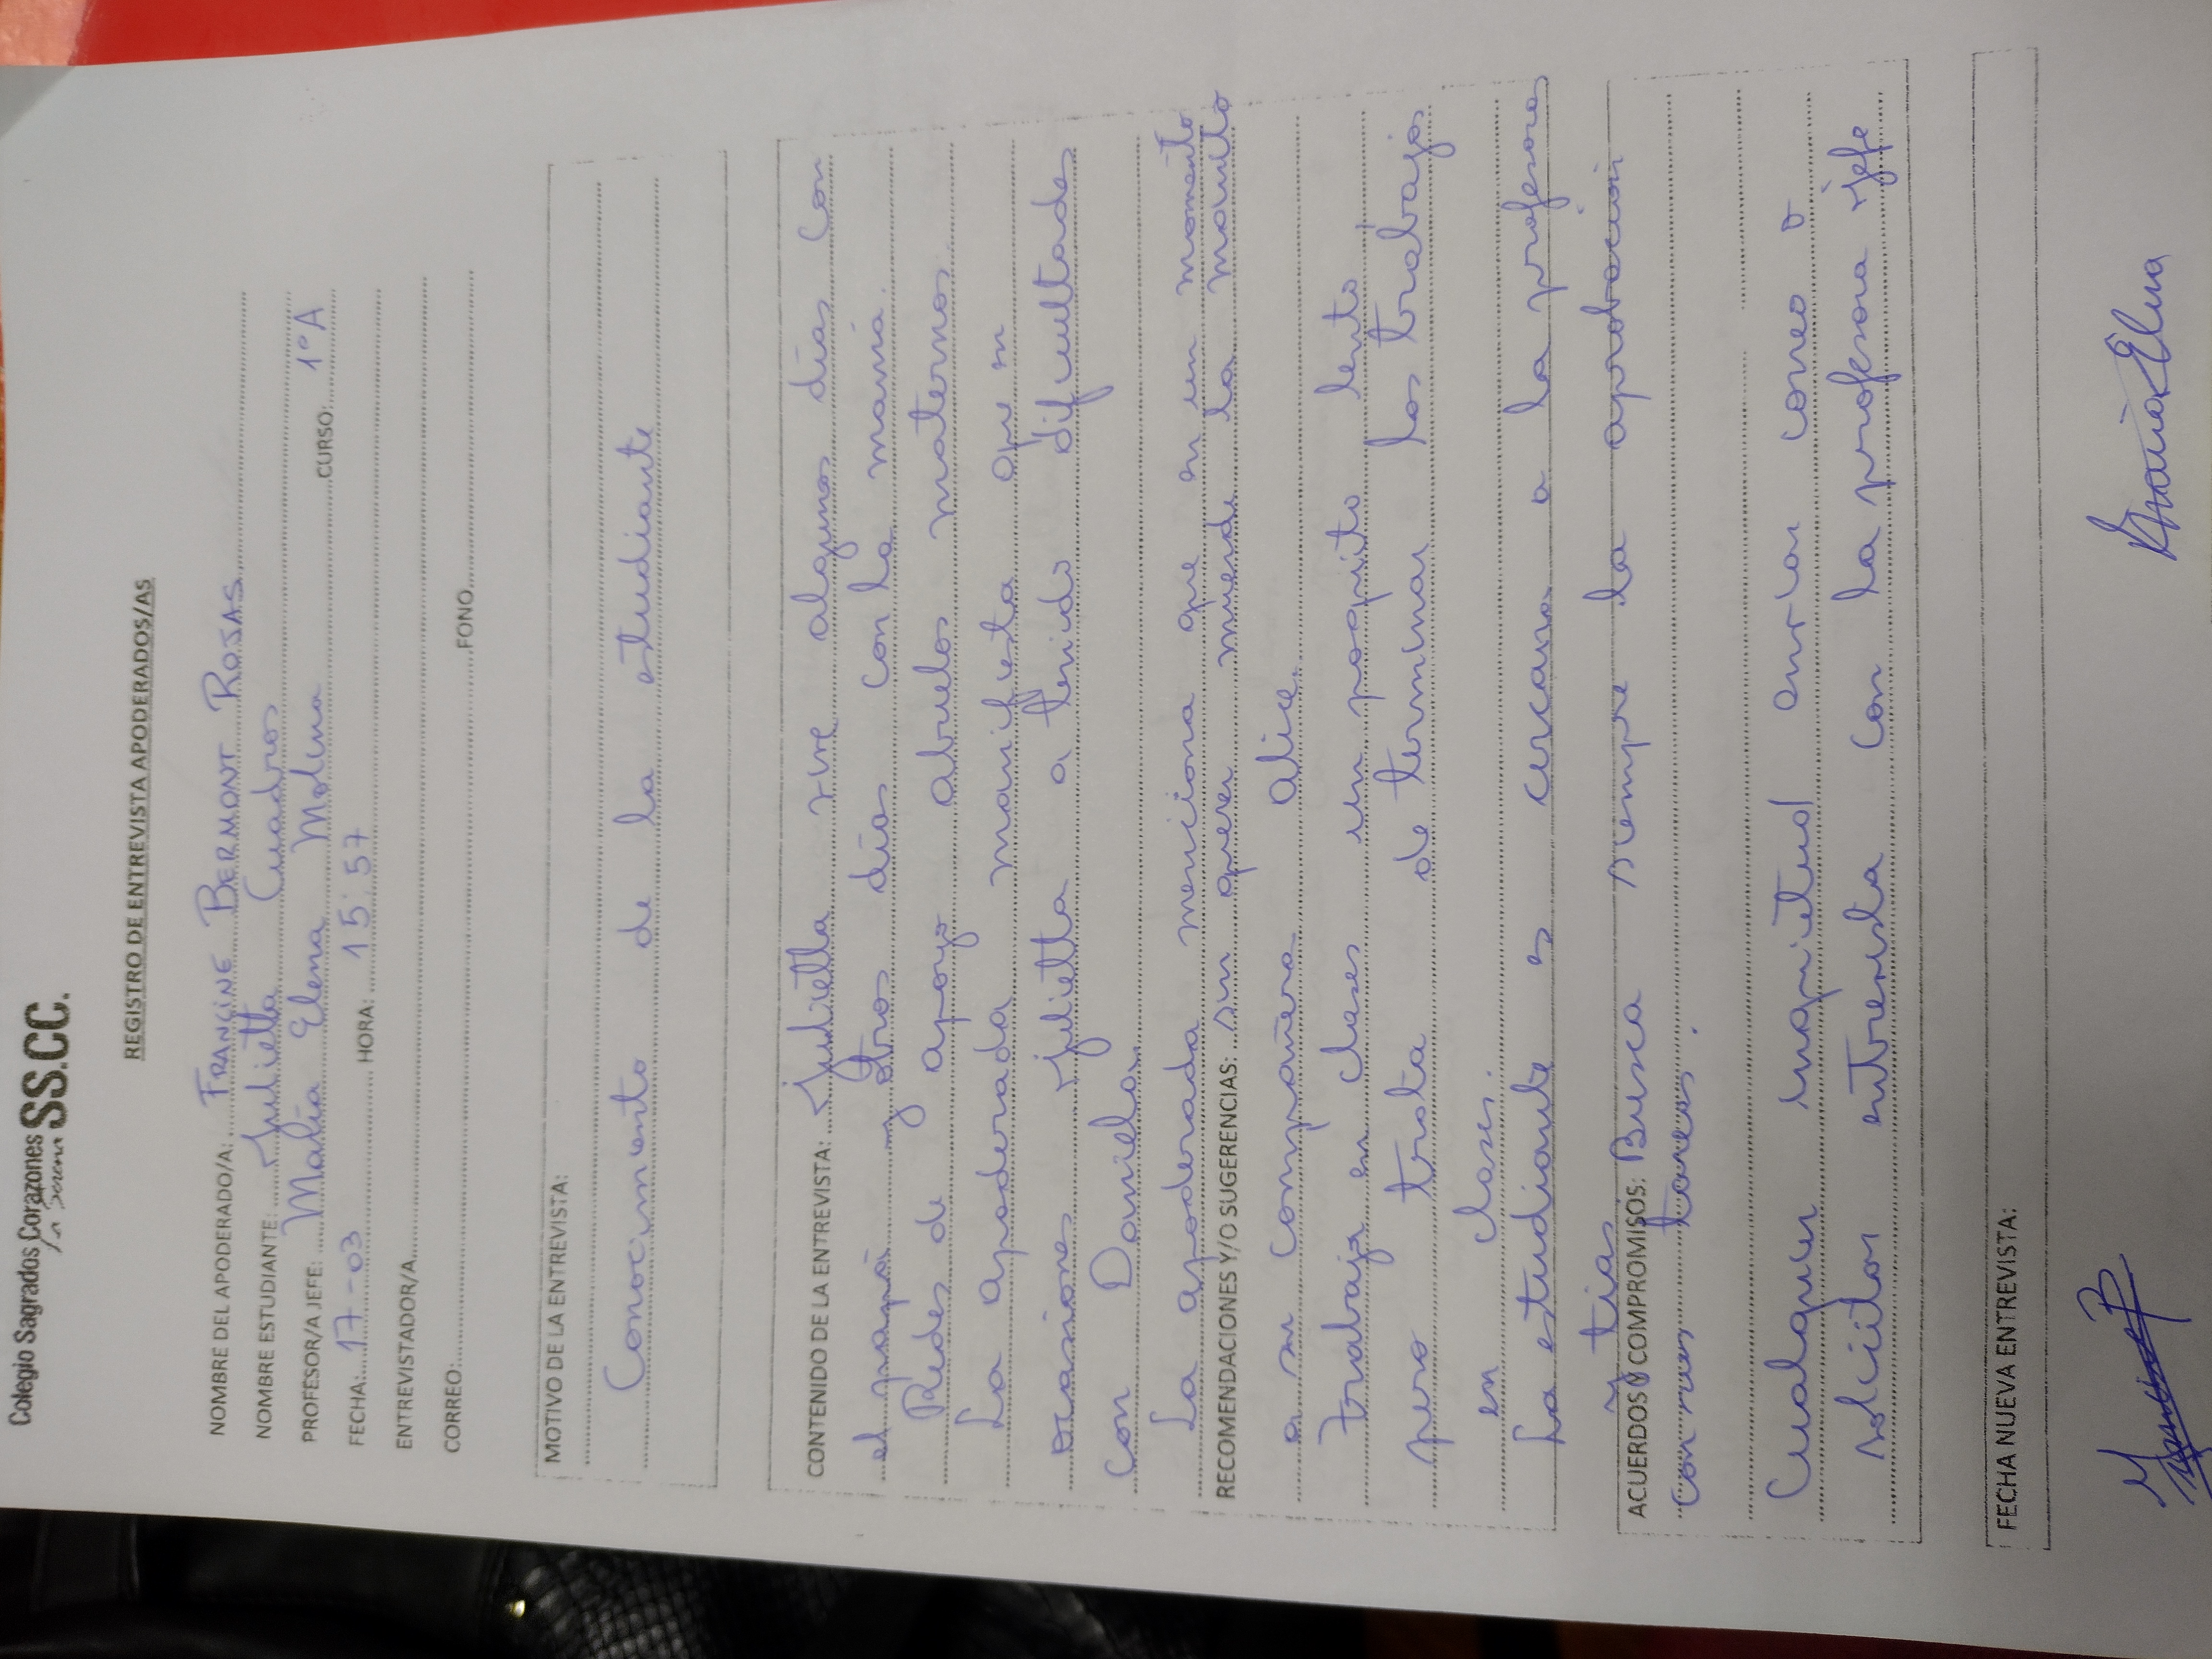 Colegio Sagrados Corazones SS.CC.
La Serena
REGISTRO DE ENTREVISTA APODERADOS/AS
NOMBRE DEL APODERADO/A: FRANCINE BERMONT ROJAS
NOMBRE ESTUDIANTE: Julietta Cuadros
PROFESOR/A JEFE: María Elena Molina CURSO: 1°A
FECHA: 17-03 HORA: 15:57
ENTREVISTADOR/A
CORREO: FONO
MOTIVO DE LA ENTREVISTA:
Conocimiento de la estudiante
CONTENIDO DE LA ENTREVISTA: Julietta vive algunos días con
el papá y otros días con la mamá.
Redes de apoyo abuelos maternos.
La apoderada manifiesta que en
ocasiones Julietta a tenido dificultades
con Daniela.
La apoderada menciona que en un momento
RECOMENDACIONES Y/O SUGERENCIAS: sin querer muerde la manito
a su compañera Alice.
Trabaja en clases un poquito lento,
pero trata de terminar los trabajos
en clases.
La estudiante es cercana a la profesora
y tías
ACUERDOS Y COMPROMISOS: Busca siempre la aprobación
con sus tareas.
Cualquier inquietud enviar correo o
solicitar entrevista con la profesora jefe
FECHA NUEVA ENTREVISTA:
María Elena